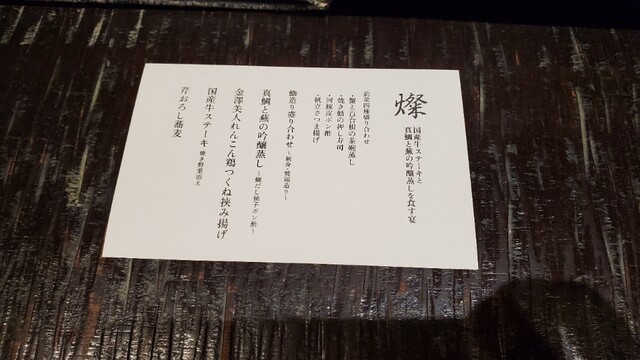 燦
国産牛ステーキと
真鯛と蕪の吟醸蒸しを食す宴
前菜四種盛り合わせ
・蟹と百合根の茶碗蒸し
・焼き鯖の押し寿司
・河豚皮ポン酢
・帆立さつま揚げ
鰤造り盛り合わせ ~刺身・焼霜造り~
真鯛と蕪の吟醸蒸し ~鯛だし柚子ポン酢~
金澤美人れんこん鶏つくね挟み揚げ
国産牛ステーキ 焼き野菜添え
芹おろし蕎麦